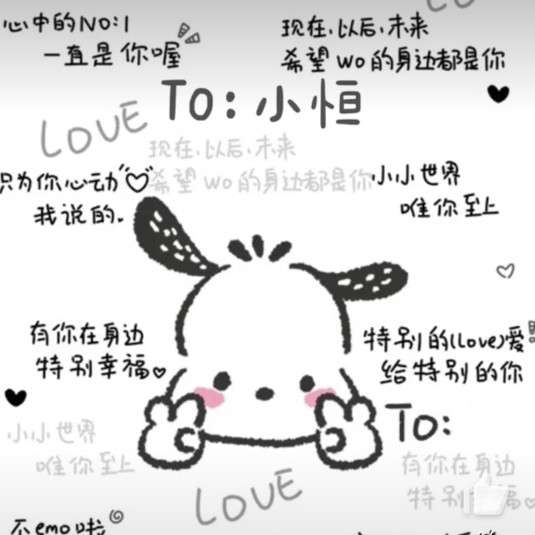 心中的NO:1
一直是你喔
现在,以后,未来
希望 wo 的身边都是你
To: 小恒
LOVE
现在,以后,未来
希望 wo 的身边都是你
只为你心动
我说的.
小小世界
唯你至上
有你在身边
特别幸福
特别的(Love)爱
给特别的你
To:
小小世界
唯你至上
有你在身边
特别幸福
LOVE
不emo啦